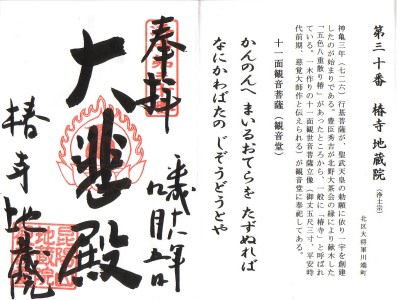 第三十番 椿寺 地蔵院 (浄土宗)
北区大将軍川端町
神亀三年(七二六)行基菩薩が、聖武天皇の勅願に依り一宇を創建
したのが始まりである。豊臣秀吉が北野大茶会の縁により献木した
「五色八重散り椿」があったところから、一般に「椿寺」と呼ばれ
ている。一木作りの十一面観世音菩薩立像(御丈五尺三寸、平安時
代前期、慈覚大師作と伝えられる)が観音堂に奉祀してある。
十一面観音菩薩(観音堂)
かんのんへ まいるおてらを たずぬれば
なにかわばたの じぞうどうとや
奉拝
平成十八年
四月五日
大悲殿
椿寺地蔵院